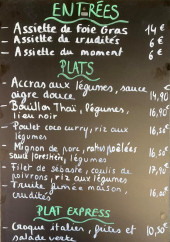 ENTRÉES
- Assiette de foie Gras 14 €
- Assiette de crudités 6 €
- Assiette du moment 6 €
PLATS
- Accras aux légumes, sauce
aigre douce 14,90€
- Bouillon Thaï, légumes,
lieu noir 16,90€
- Poulet coco curry, riz aux
légumes
- Mignon de porc, rostis poêlées
sauce forestière, légumes
- Filet de sébaste, coulis de
poivrons, riz aux légumes 17,90
- Truite fumée maison,
crudités
PLAT EXPRESS
- Croque italien, frites et
salade verte 10,50€